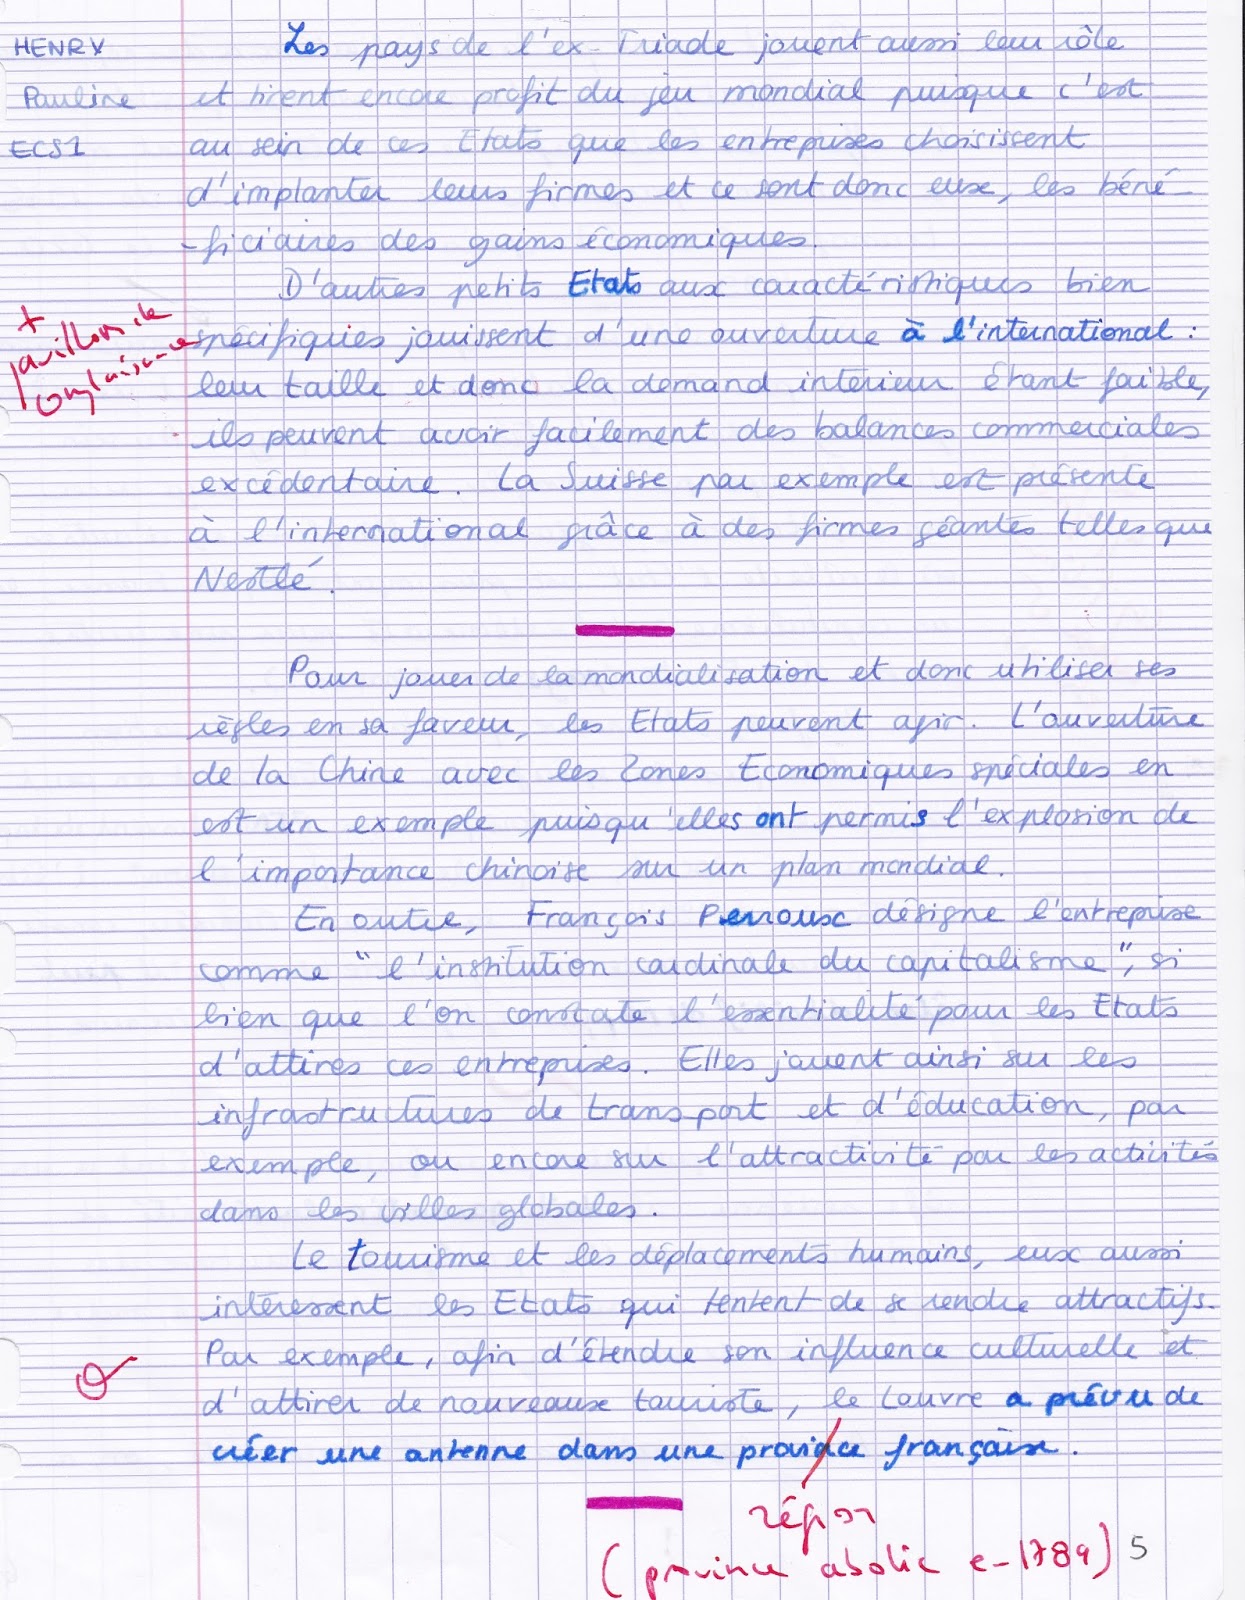 HENRY
Pauline
ECS1
Les pays de l'ex-Triade jouent aussi leur rôle
et tirent encore profit du jeu mondial puisque c'est
au sein de ces Etats que les entreprises choisissent
d'implanter leurs firmes et ce sont donc eux, les béné-
-ficiaires des gains économiques.
D'autres petits Etats aux caractéristiques bien
+
pavillon de
complaisance
spécifiques jouissent d'une ouverture à l'international :
leur taille et donc la demand intérieur étant faible,
ils peuvent avoir facilement des balances commerciales
excédentaire. La Suisse par exemple est présente
à l'international grâce à des firmes géantes telles que
Nestlé.
Pour jouer de la mondialisation et donc utiliser ses
règles en sa faveur, les Etats peuvent agir. L'ouverture
de la Chine avec les Zones Economiques spéciales en
est un exemple puisqu'elles ont permis l'explosion de
l'importance chinoise sur un plan mondial.
En outre, François Perroux désigne l'entreprise
comme "l'institution cardinale du capitalisme", si
bien que l'on constate l'essentialité pour les Etats
d'attires ces entreprises. Elles jouent ainsi sur les
infrastructures de transport et d'éducation, par
exemple, ou encore sur l'attractivité par les activités
dans les villes globales.
Le tourisme et les déplacements humains, eux aussi
intéressent les Etats qui tentent de se rendre attractifs.
Par exemple, afin d'étendre son influence culturelle et
d'attirer de nouveaux touriste, le Louvre a prévu de
créer une antenne dans une province française.
région
(province abolie en 1789)
5